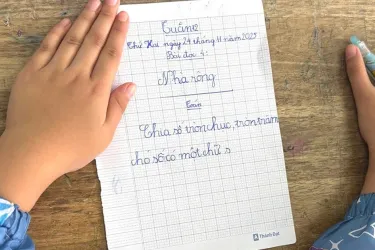 Tuần
Thứ Hai ngày 24 tháng 11 năm 2025
Bài đọc 4:
Nhà rông
Toán
Chia số tròn chục, tròn trăm
cho số có một chữ s
Thanh Đạt